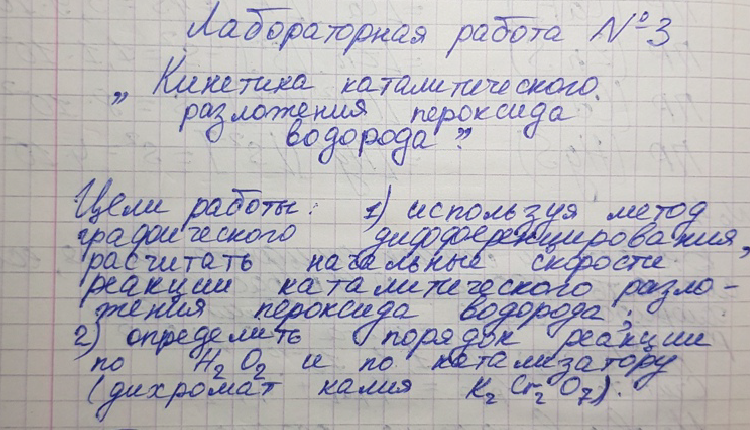 Лабораторная работа №3
„ Кинетика каталитического
разложения пероксида
водорода ”
Цели работы: 1) используя метод
графического дифференцирования,
расчитать начальные скорости
реакции каталитического разло-
жения пероксида водорода;
2) определить порядок реакции
по H₂O₂ и по катализатору
(дихромат калия K₂Cr₂O₇).